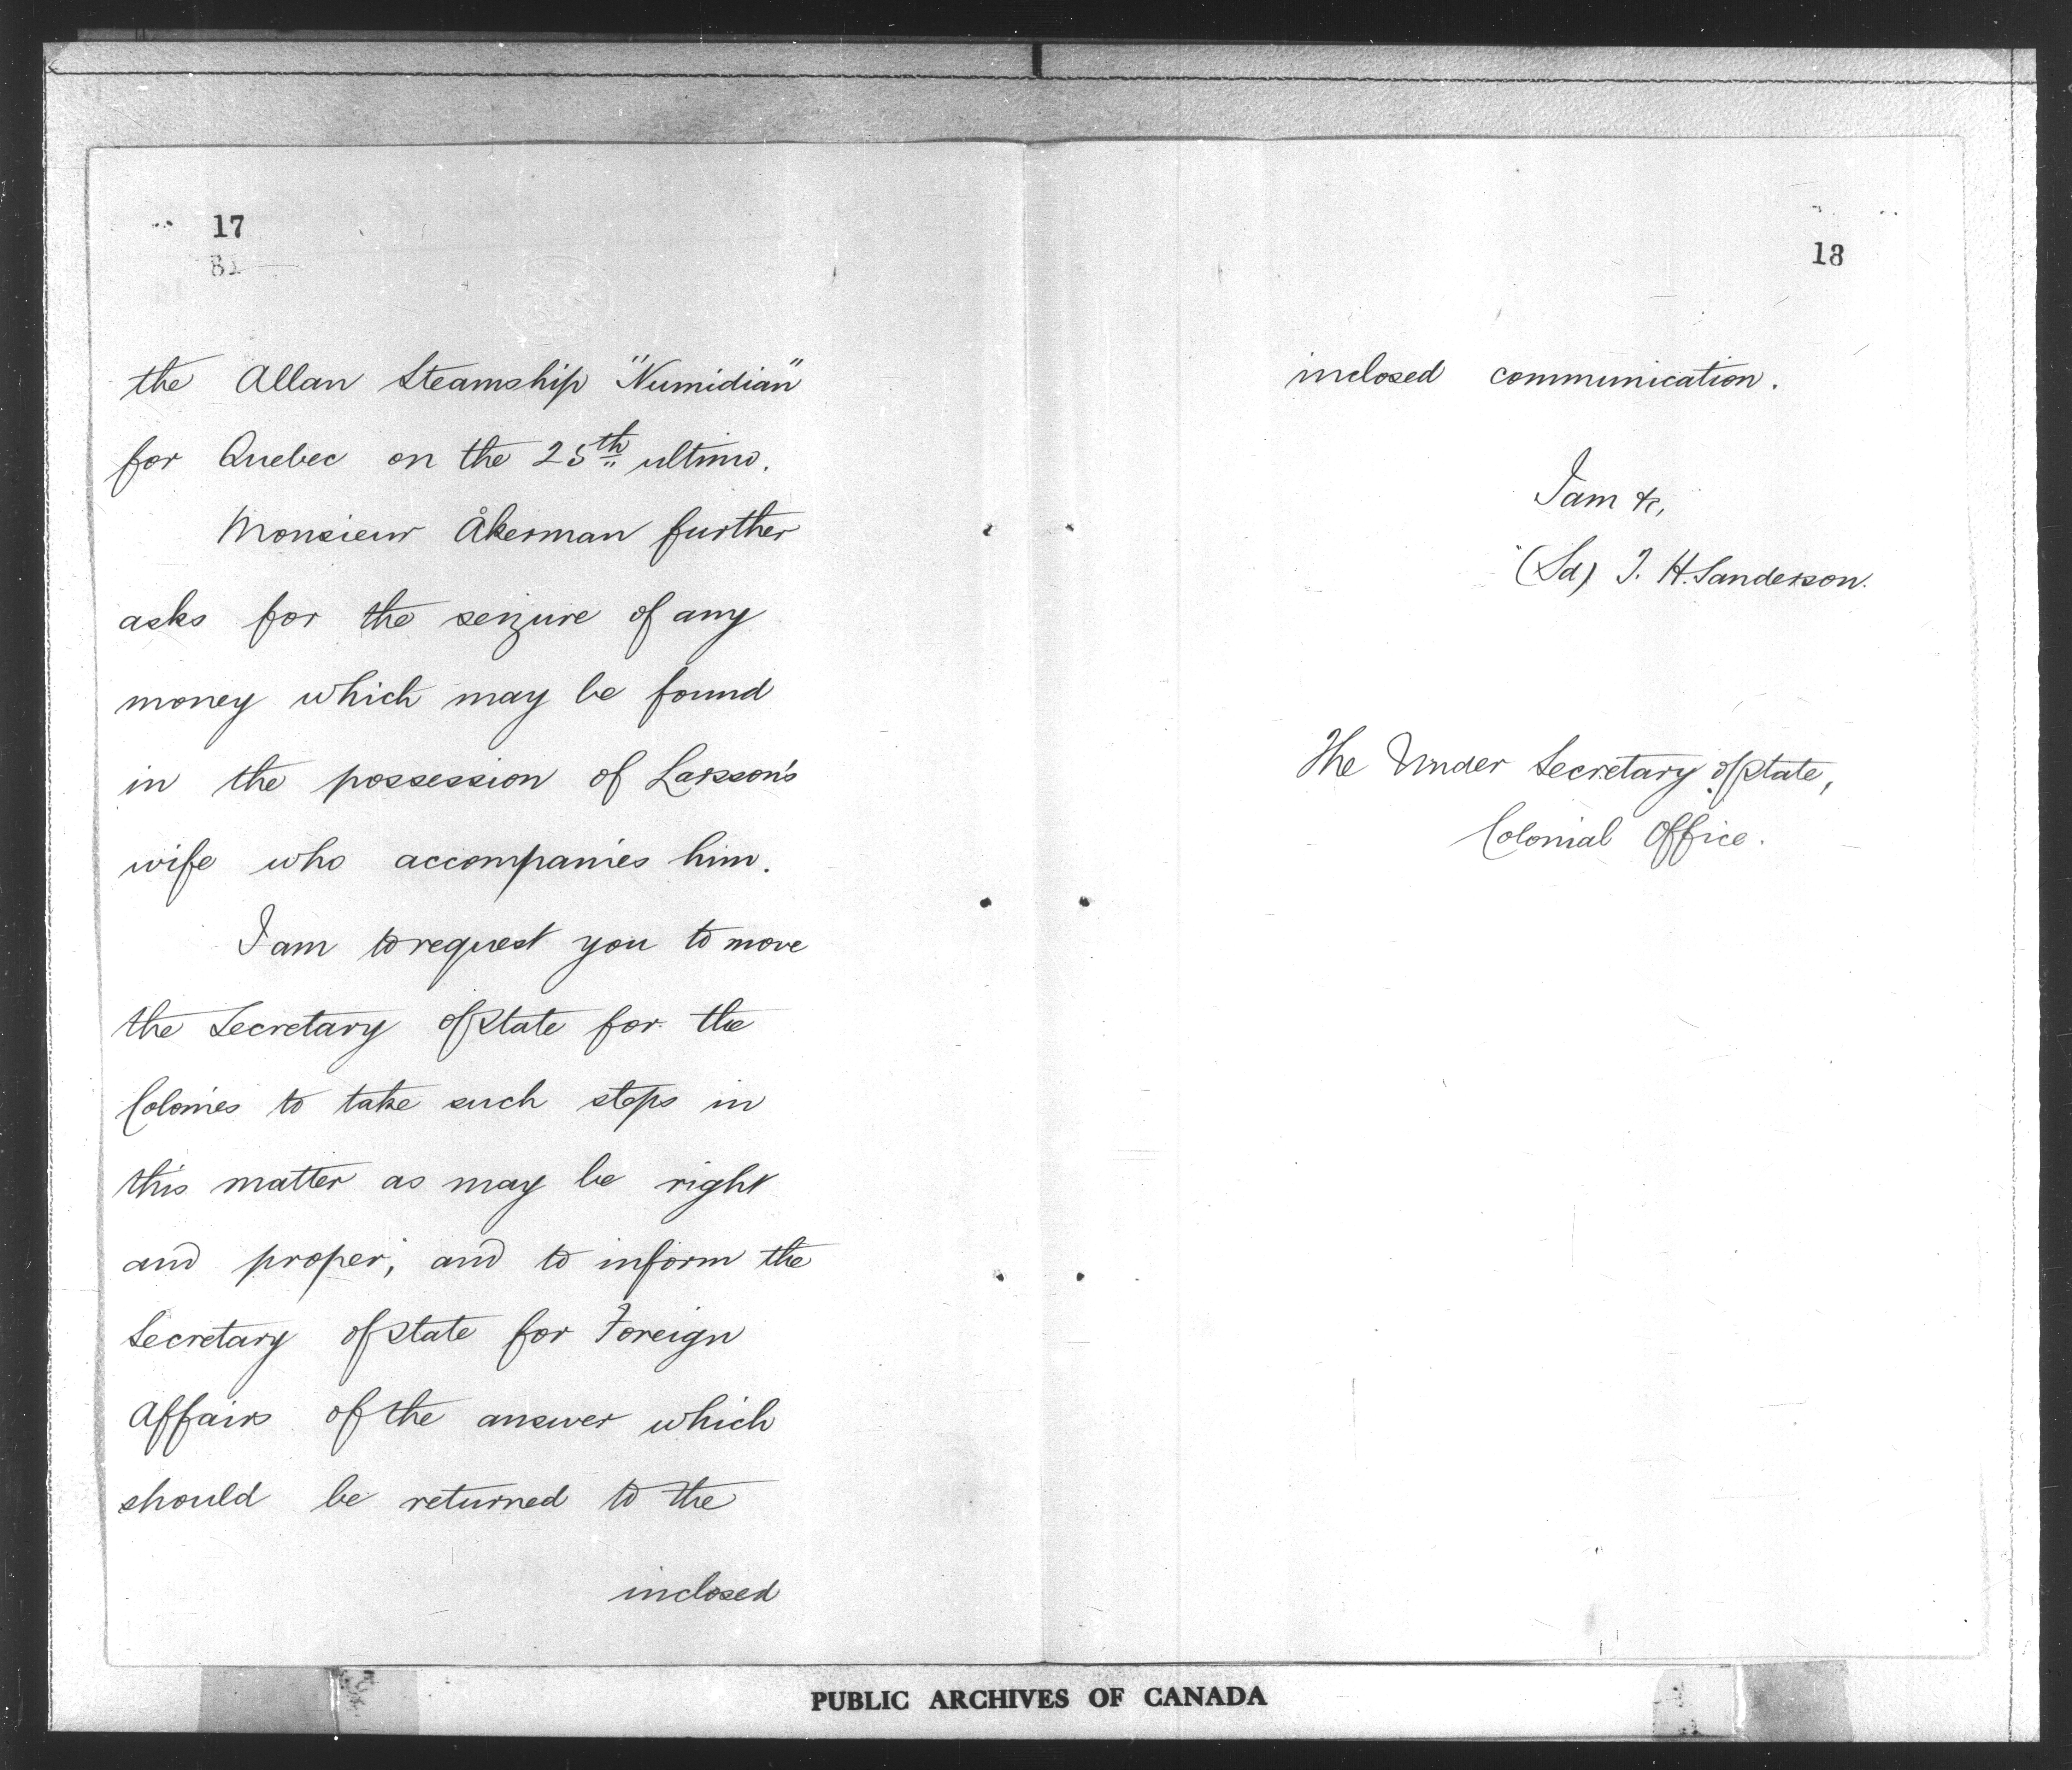 17
the Allan Steamship "Numidian"
for Quebec on the 25th ultimo.
Monsieur Åkerman further
asks for the seizure of any
money which may be found
in the possession of Larsson's
wife who accompanies him.
I am to request you to move
the Secretary of State for the
Colonies to take such steps in
this matter as may be right
and proper; and to inform the
Secretary of State for Foreign
Affairs of the answer which
should be returned to the
inclosed
18
inclosed communication.
I am &c,
(Sd) T. H. Sanderson.
The Under Secretary of State,
Colonial Office.
PUBLIC ARCHIVES OF CANADA